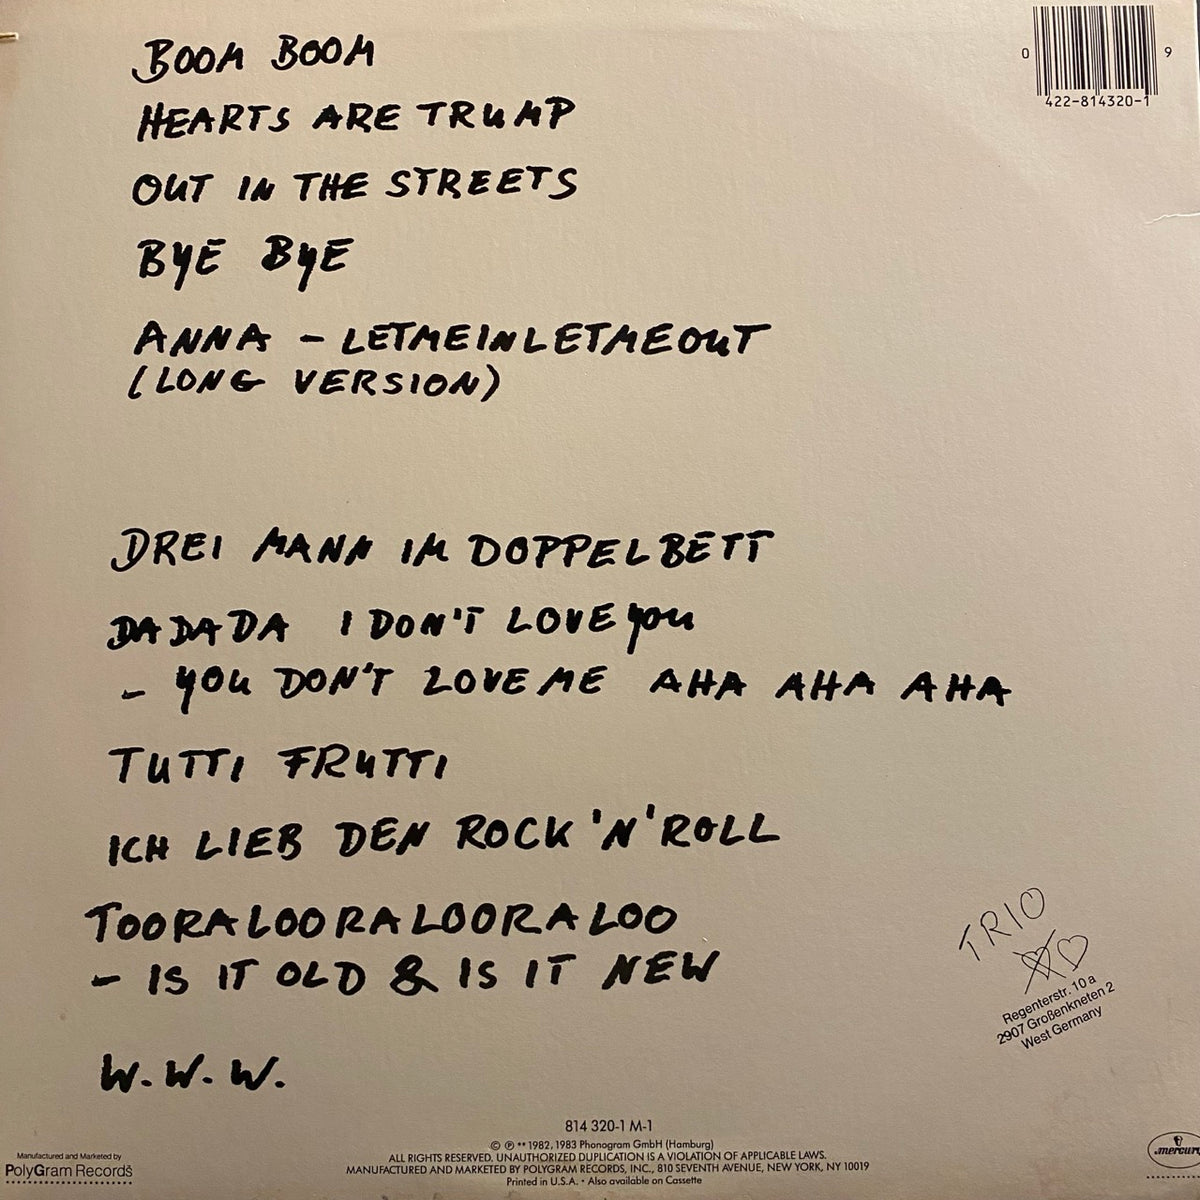 BOOM BOOM
HEARTS ARE TRUMP
OUT IN THE STREETS
BYE BYE
ANNA – LETMEINLETMEOUT
(LONG VERSION)
DREI MANN IM DOPPELBETT
DA DA DA I DON'T LOVE YOU
– YOU DON'T LOVE ME AHA AHA AHA
TUTTI FRUTTI
ICH LIEB DEN ROCK 'N' ROLL
TOORALOORALOORALOO
– IS IT OLD & IS IT NEW
W. W. W.
0 9
422-814320-1
TRIO
Regenterstr. 10 a
2907 Großenkneten 2
West Germany
814 320-1 M-1
© ℗ ** 1982, 1983 Phonogram GmbH (Hamburg)
ALL RIGHTS RESERVED. UNAUTHORIZED DUPLICATION IS A VIOLATION OF APPLICABLE LAWS.
MANUFACTURED AND MARKETED BY POLYGRAM RECORDS, INC., 810 SEVENTH AVENUE, NEW YORK, NY 10019
Printed in U.S.A. • Also available on Cassette
Manufactured and Marketed by
PolyGram Records
mercury